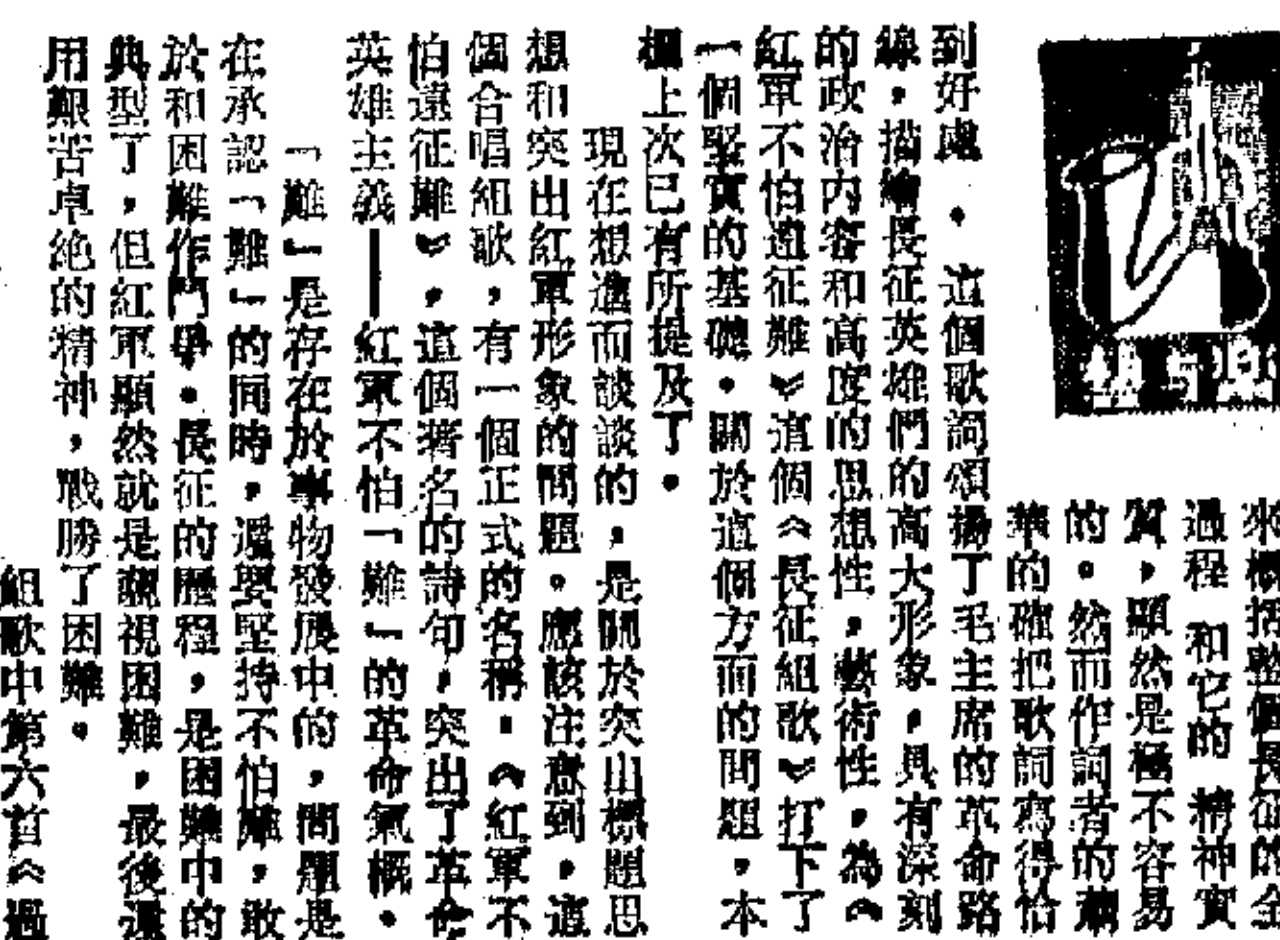 來概括整個長征的全
過程 和它的 精神實
質，顯然是極不容易
的。然而作詞者的
的確把歌詞寫得恰
到好處．這個歌詞頌揚了毛主席的革命路
線，描繪長征英雄們的高大形象，具有深刻
的政治內容和高度的思想性，藝術性，為《
紅軍不怕遠征難》這個《長征組歌》打下了
一個堅實的基礎。關於這個方面的問題，本
欄上次已有所提及了。
現在想進而談談的，是關於突出標題思
想和突出紅軍形象的問題。應該注意到，這
個合唱組歌，有一個正式的名稱．《紅軍不
怕遠征難》，這個著名的詩句，突出了革命
英雄主義——紅軍不怕「難」的革命氣概。
「難」是存在於事物發展中的，問題是
在承認「難」的同時，還要堅持不怕難，敢
於和困難作鬥爭。長征的歷程，是困難中的
典型了，但紅軍顯然就是藐視困難，最後還
用艱苦卓絕的精神，戰勝了困難。
組歌中第六首《過